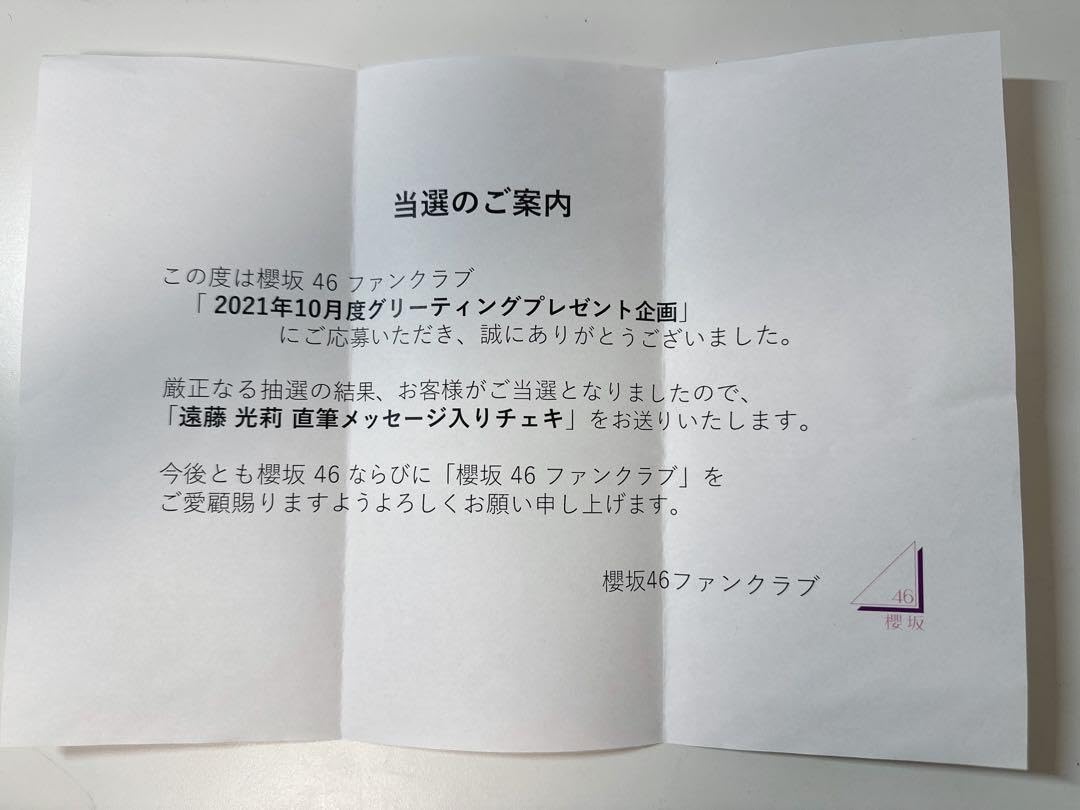 当選のご案内
この度は櫻坂 46 ファンクラブ
「 2021年10月度グリーティングプレゼント企画」
にご応募いただき、誠にありがとうございました。
厳正なる抽選の結果、お客様がご当選となりましたので、
「遠藤 光莉 直筆メッセージ入りチェキ」をお送りいたします。
今後とも櫻坂 46 ならびに「櫻坂 46 ファンクラブ」を
ご愛顧賜りますようよろしくお願い申し上げます。
櫻坂46ファンクラブ
46
櫻坂